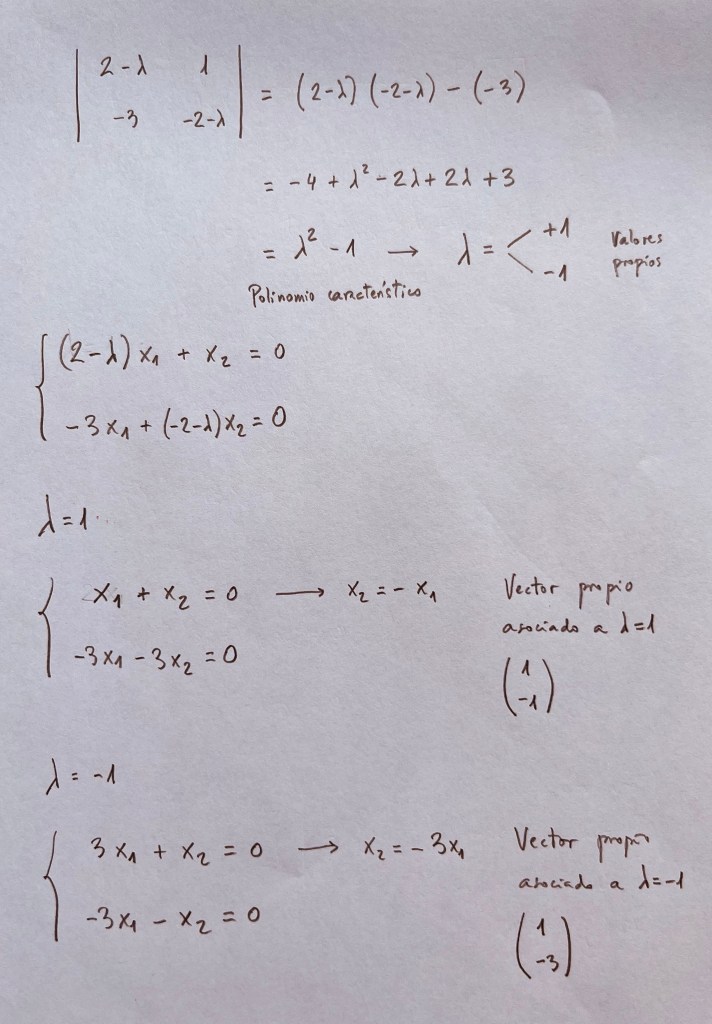 | 2-λ 1 | = (2-λ)(-2-λ) - (-3)
| -3 -2-λ |
= -4 + λ² - 2λ + 2λ + 3
= λ² - 1 → λ = < +1 Valores
-1 propios
Polinomio característico
{ (2-λ) x₁ + x₂ = 0
-3x₁ + (-2-λ)x₂ = 0
λ = 1
{ x₁ + x₂ = 0 → x₂ = - x₁ Vector propio
asociado a λ=1
-3x₁ - 3x₂ = 0
(1
-1)
λ = -1
{ 3x₁ + x₂ = 0 → x₂ = - 3x₁ Vector propio
asociado a λ=-1
-3x₁ - x₂ = 0
(1
-3)